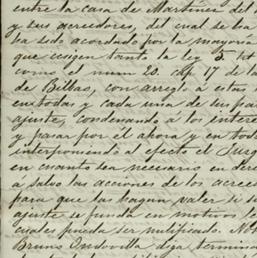 entre la casa de Martinez del
y sus acreedores, del cual se ha
ha sido acordado por la mayoria
que exigen tanto la ley 5. tit
como el num 20. cap 17 de la
de Bilbao, con arreglo a estas
en todas y cada una de sus par
ajuste, condenando a los intere
y pasar por él ahora y en todo
interponiendo al efecto el Juzg
en cuanto sea necesario en dere
a salvo las acciones de los acree
para que las hagan valer si se
ajuste se funda en motivos le
cuales pueda ser nulificado.
Bruno deja termina